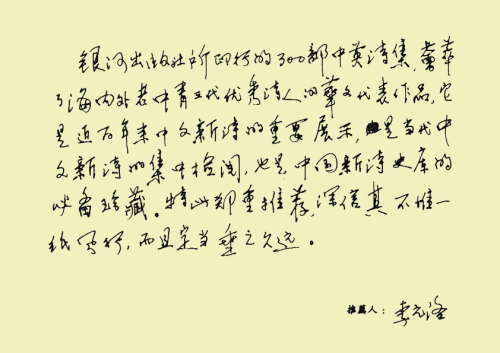 银河出版社所印行的300部中英诗集，荟萃
了海内外老中青三代优秀诗人的华文代表作品，它
是近百年来中文新诗的重要展示，也是当代中
文新诗的集中检阅，也是中国新诗史库的
必备珍藏。特此郑重推荐，深信其不惟一
纸风行，而且定当垂之久远。
推荐人：李元洛